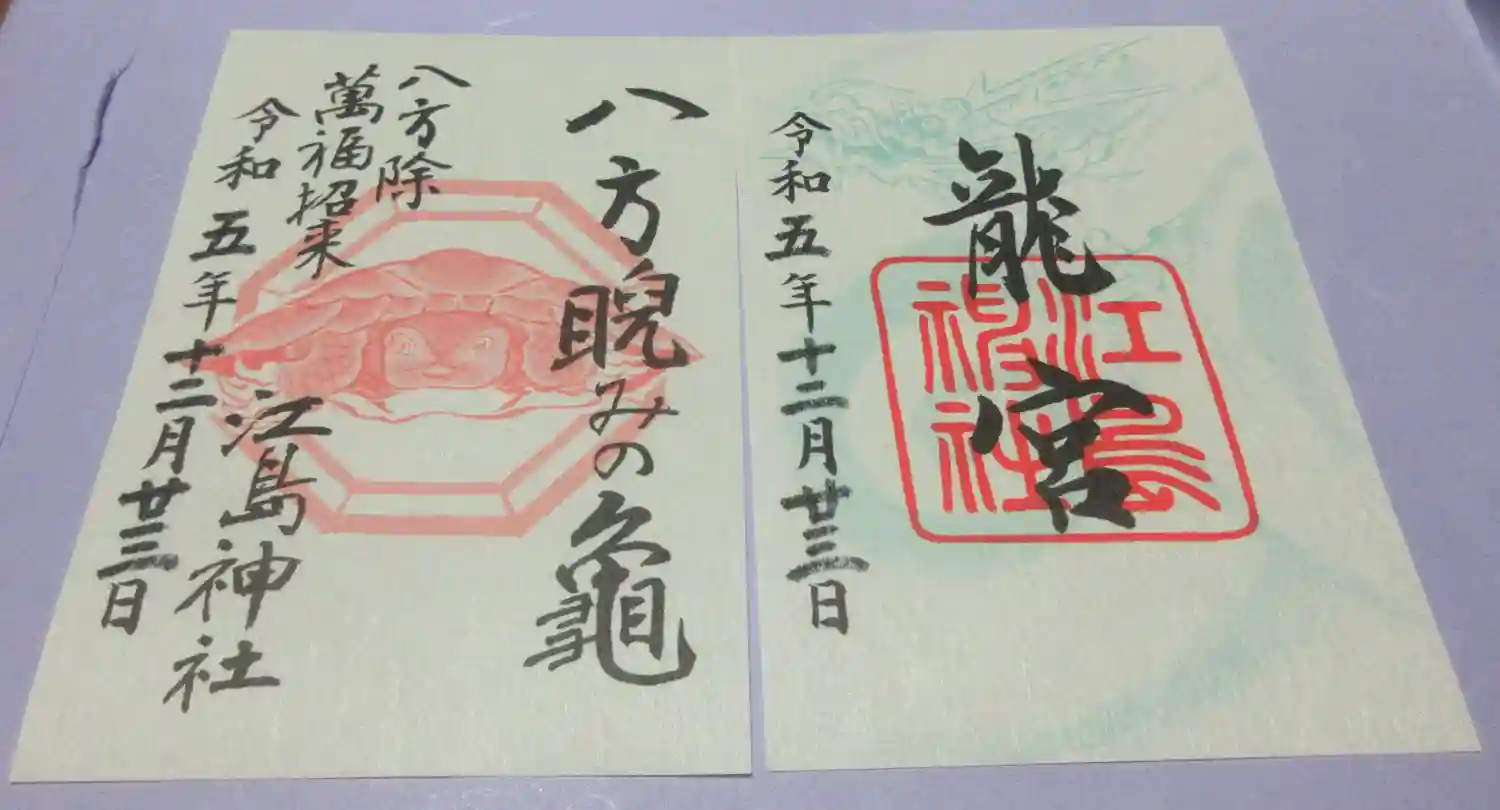 龍宮
江島
神社
令和五年十二月廿三日
八方睨みの龜
八方除
萬福招来
江島神社
令和五年十二月廿三日